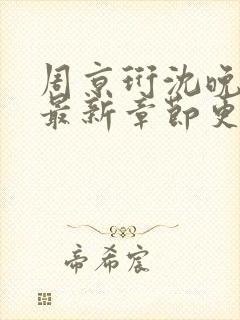 周京衍沈晚
最新章节更
帝希宸